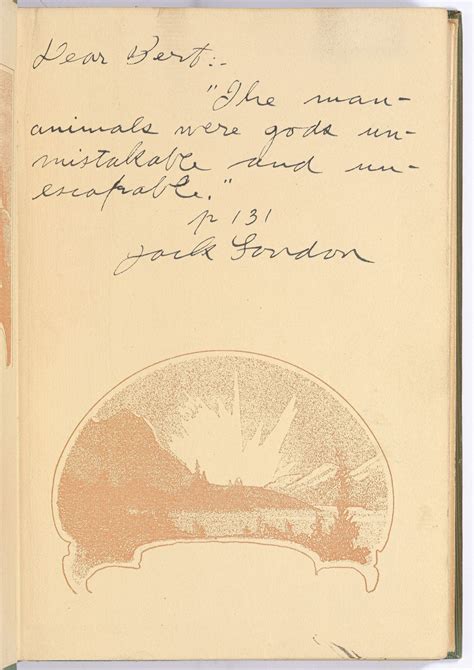 Dear Bert:-
"The man-
animals were gods un-
mistakable and un-
escapable."
p 131
Jack London